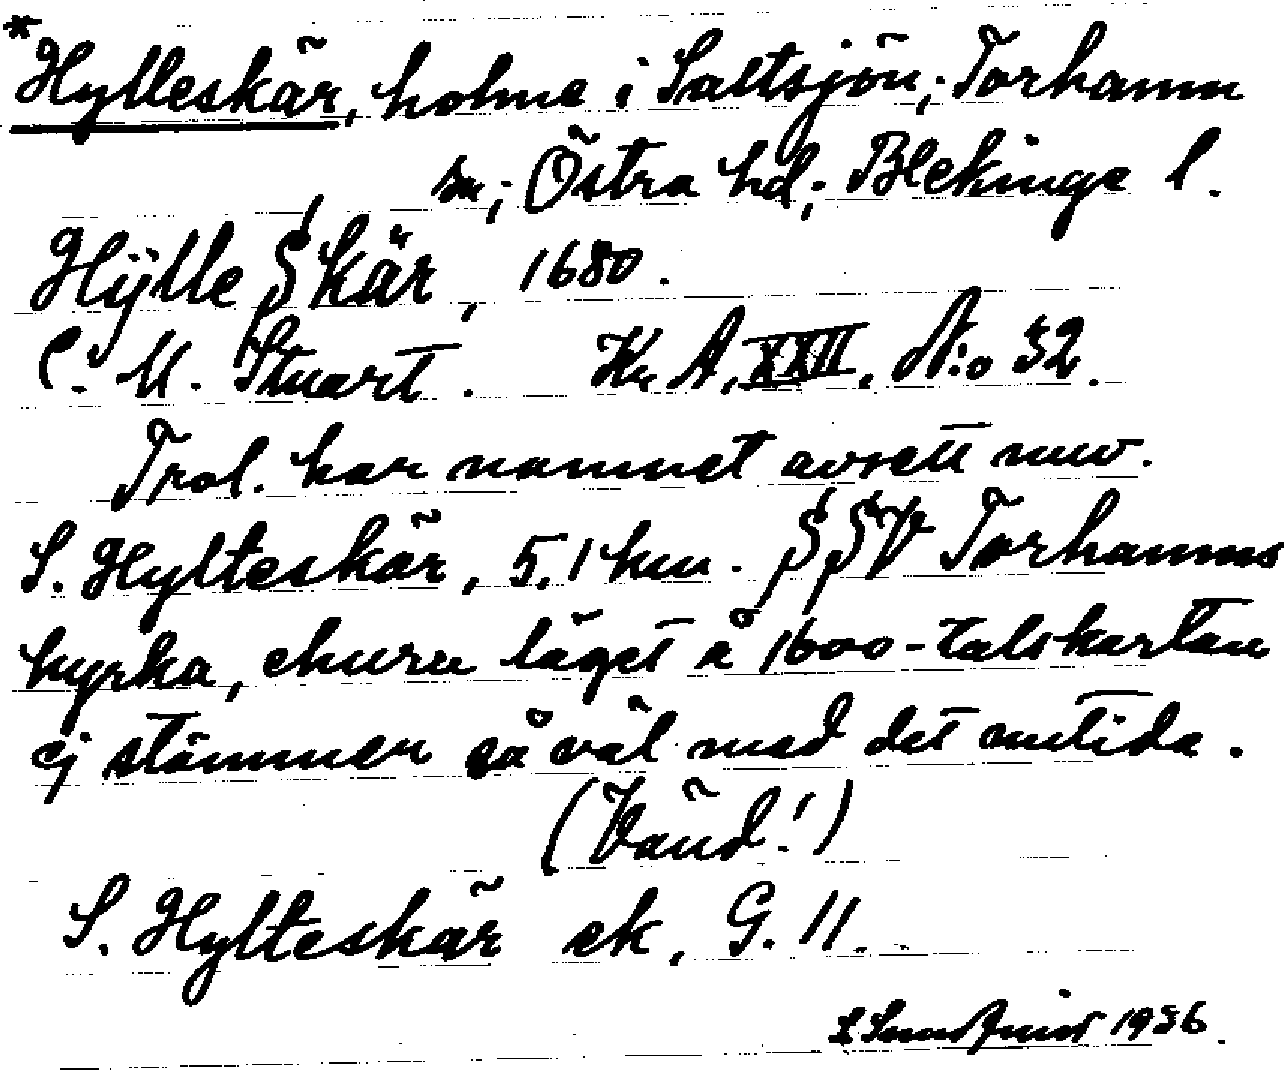 *Hylleskär, holme i Saltsjön; Torhamn
sn; Östra hd; Blekinge l.
Hÿlle Skär, 1680.
C. M. Stuart. Kr. A. XXII, N:o 32.
Trol. har namnet avsett nuv.
S. Hylteskär, 5,1 km. SSV Torhamns
kyrka, ehuru läget å 1600-talskartan
ej stämmer så väl med det nutida.
(Vänd!)
S. Hylteskär ek, G. 11.
1936.